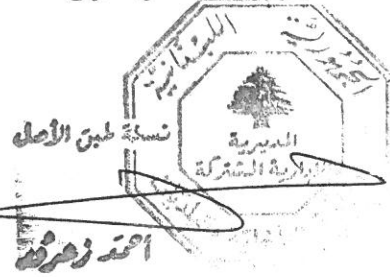 الجمهورية اللبنانية
المديرية
الإدارية المشتركة
نسخة طبق الأصل
أحمد زعرور